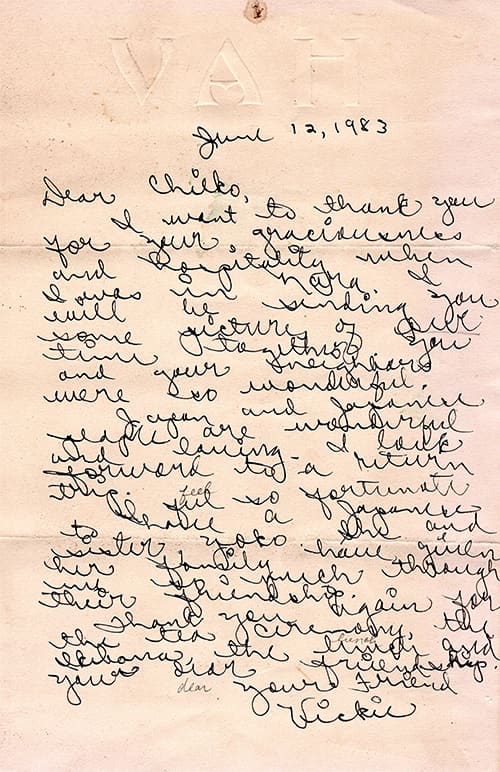 VAH
June 12, 1983
Dear Chieko,
I want to thank you
for your graciousness
and hospitality when
I was in Nara. I
will be sending you
some pictures of our
time together. You
and your neighbors
were so wonderful.
Japan and Japanese
people are wonderful
and loving - I look
forward to a return
trip. feel so fortunate
to have a Japanese
sister Yoko. She and
her family have given
me much through
their friendship.
Thank you again for
the tea ceremony, the
Ikibana the lunch and
lunch
your dear friendship.
dear
your Friend
Vickie